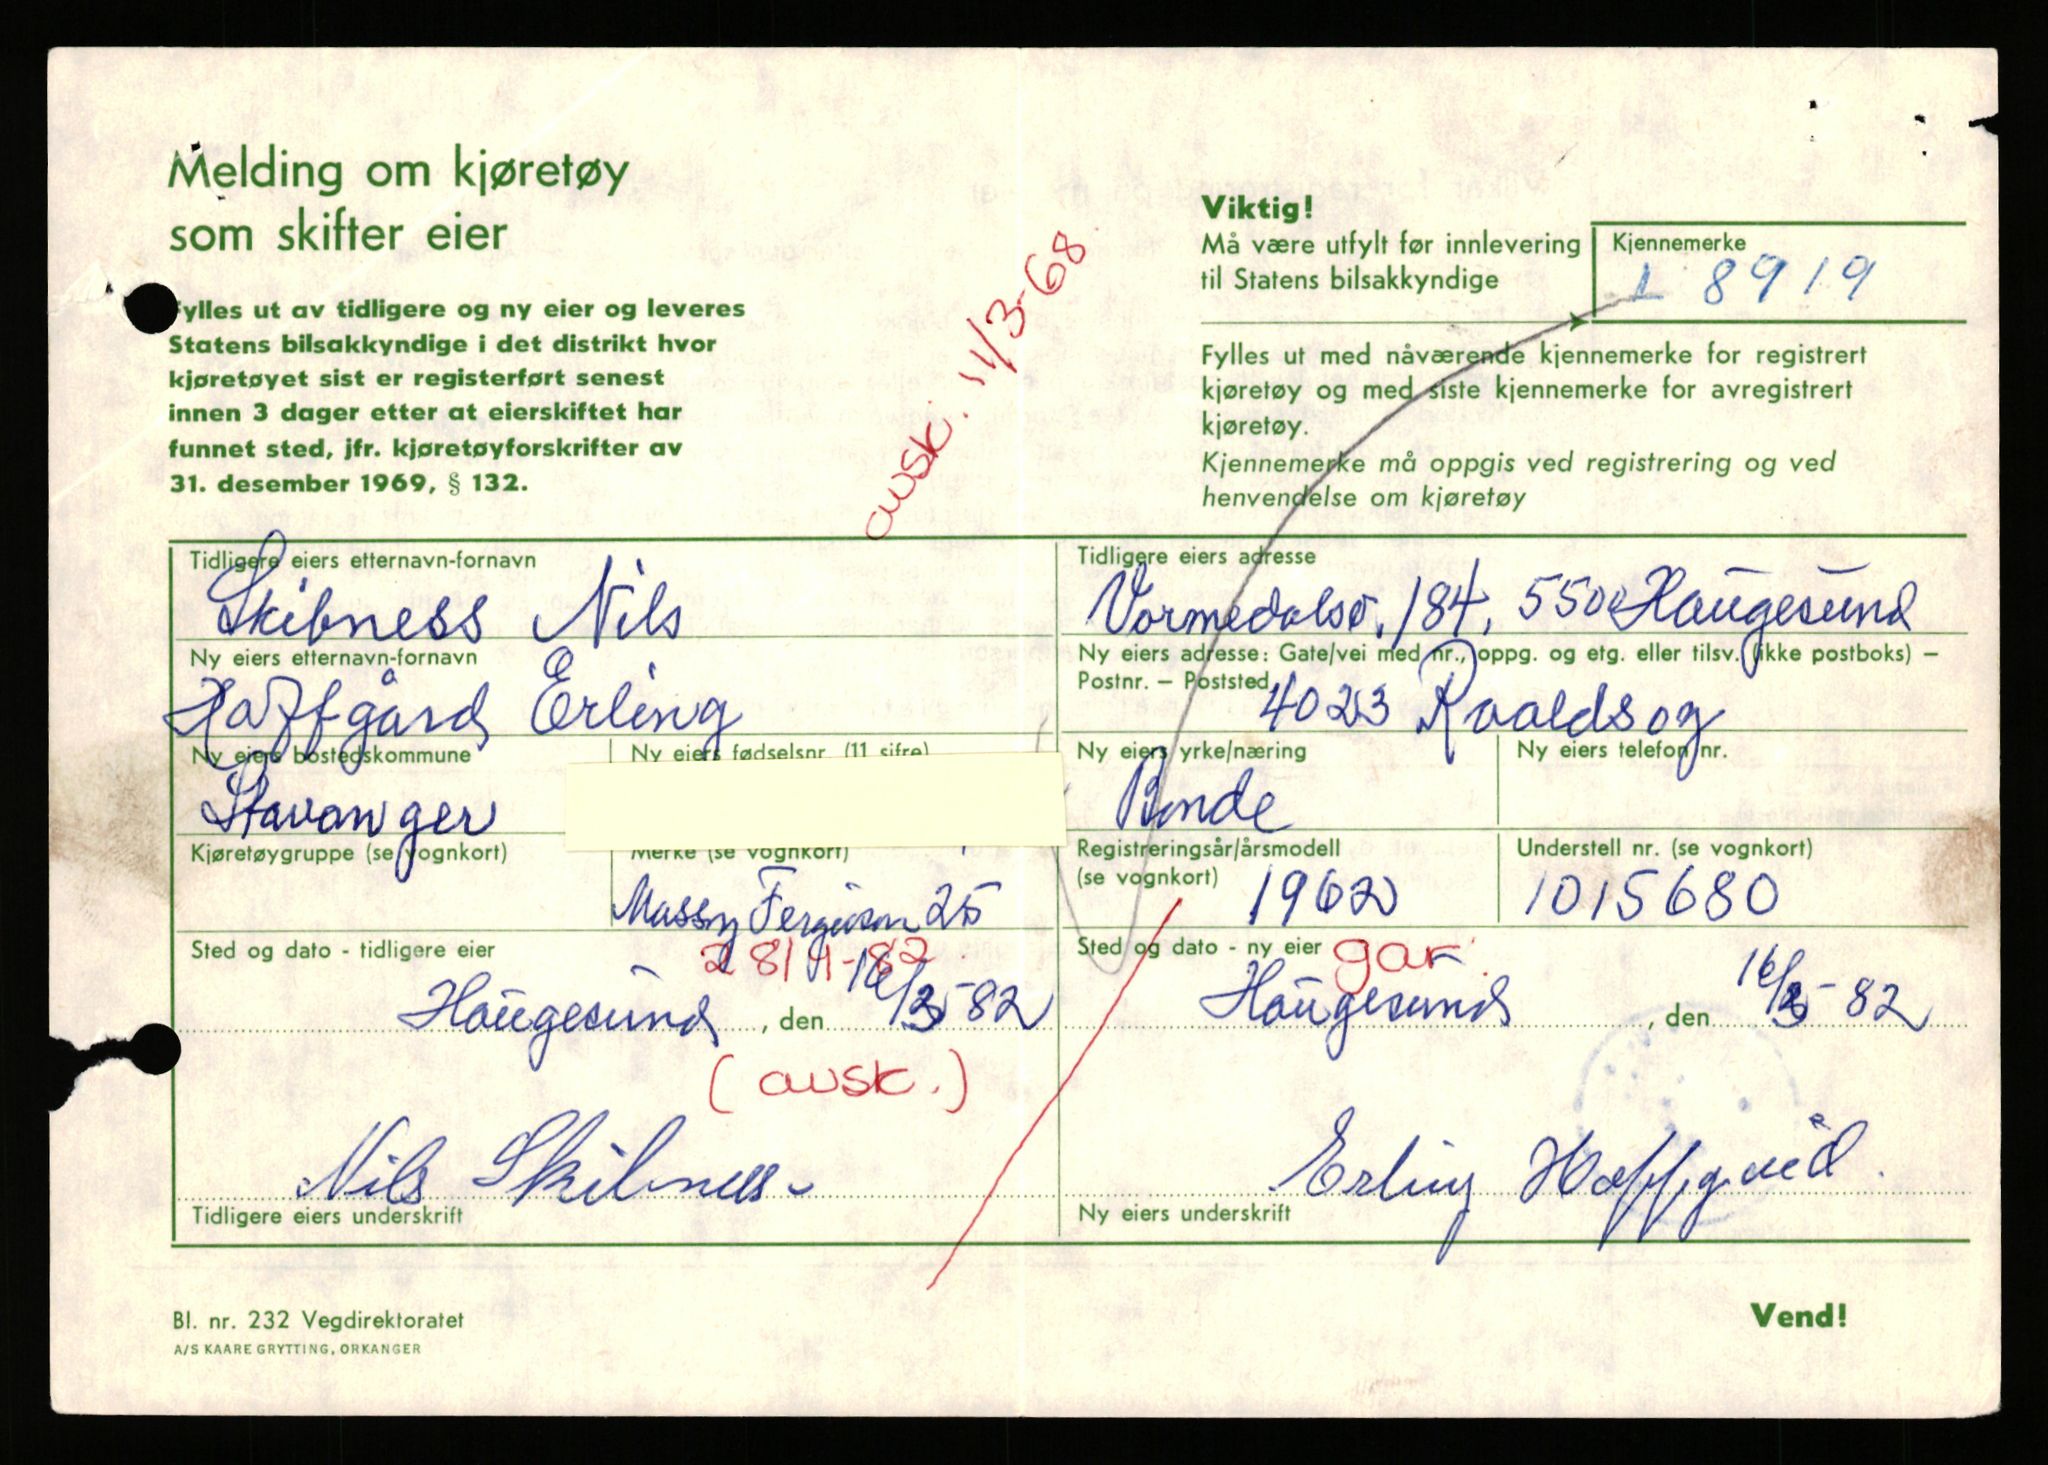 Melding om kjøretøy
som skifter eier
Fylles ut av tidligere og ny eier og leveres
Statens bilsakkyndige i det distrikt hvor
kjøretøyet sist er registerført senest
innen 3 dager etter at eierskiftet har
funnet sted, jfr. kjøretøyforskrifter av
31. desember 1969, § 132.
avsk. 11/3-68.
Viktig!
Må være utfylt før innlevering
til Statens bilsakkyndige
Kjennemerke
L 8919
Fylles ut med nåværende kjennemerke for registrert
kjøretøy og med siste kjennemerke for avregistrert
kjøretøy.
Kjennemerke må oppgis ved registrering og ved
henvendelse om kjøretøy
Tidligere eiers etternavn-fornavn
Skibness Nils
Tidligere eiers adresse
Vormedalsv. 184, 5500 Haugesund
Ny eiers etternavn-fornavn
Haffgård Erling
Ny eiers adresse: Gate/vei med nr., oppg. og etg. eller tilsv. (ikke postboks) –
Postnr. – Poststed
4023 Roaldsøy
Ny eiers bostedskommune
Stavanger
Ny eiers fødselsnr. (11 sifre)
Ny eiers yrke/næring
Bonde
Ny eiers telefon nr.
Kjøretøygruppe (se vognkort)
Merke (se vognkort)
Massy Ferguson 25
Registreringsår/årsmodell
(se vognkort)
1962
Understell nr. (se vognkort)
1015680
Sted og dato - tidligere eier
28/4-82
Haugesund, den 16/3-82
(avsk.)
Sted og dato - ny eier
gar.
Haugesund, den 16/3-82
Nils Skibness
Tidligere eiers underskrift
Erling Hoffgård.
Ny eiers underskrift
Bl. nr. 232 Vegdirektoratet
A/S KAARE GRYTTING, ORKANGER
Vend!